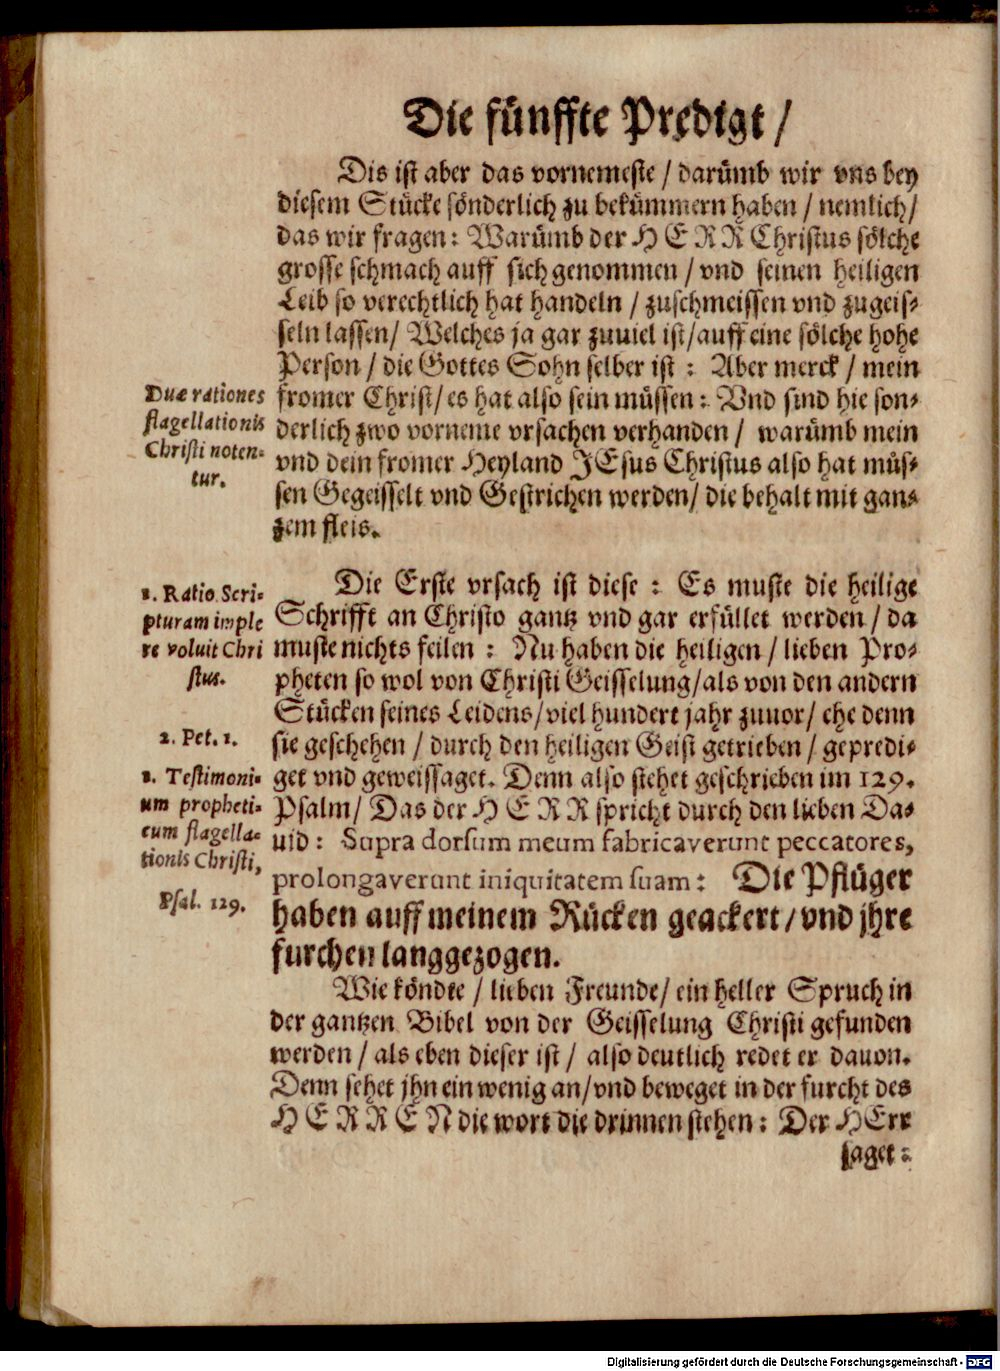 Die fünffte Predigt /
Dis ist aber das vornemeste / darümb wir vns bey
diesem Stücke sönderlich zu bekümmern haben / nemlich /
das wir fragen : Warümb der HERR Christus sölche
grosse schmach auff sich genommen / vnd seinen heiligen
Leib so verechtlich hat handeln / zuschmeissen vnd zugeis-
seln lassen / Welches ja gar zuuiel ist / auff eine sölche hohe
Person / die Gottes Sohn selber ist : Aber merck / mein
fromer Christ / es hat also sein müssen : Vnd sind hie son-
derlich zwo vorneme vrsachen verhanden / warümb mein
vnd dein fromer Heyland JEsus Christus also hat müs-
sen Gegeisselt vnd Gestrichen werden / die behalt mit gan-
zem fleis.
Duæ rationes
flagellationis
Christi noten-
tur.
Die Erste vrsach ist diese : Es muste die heilige
Schrifft an Christo gantz vnd gar erfüllet werden / da
muste nichts feilen : Nu haben die heiligen / lieben Pro-
pheten so wol von Christi Geisselung / als von den andern
Stücken seines Leidens / viel hundert jahr zuuor / ehe denn
sie geschehen / durch den heiligen Geist getrieben / gepredi-
get vnd geweissaget. Denn also stehet geschrieben im 129.
Psalm / Das der HERR spricht durch den lieben Da-
uid : Supra dorsum meum fabricaverunt peccatores,
prolongaverunt iniquitatem suam : Die Pflüger
haben auff meinem Rücken geackert / vnd jhre
furchen lang gezogen.
1. Ratio. Scri-
pturam imple
re voluit Chri
stus.
2. Pet. 1.
1. Testimoni-
um propheti-
cum flagella-
tionis Christi,
Psal. 129.
Wie köndte / lieben Freunde / ein heller Spruch in
der gantzen Bibel von der Geisselung Christi gefunden
werden / als eben dieser ist / also deutlich redet er dauon.
Denn sehet jhn ein wenig an / vnd beweget in der furcht des
HERREN die wort die drinnen stehen : Der HErr
saget :
Digitalisierung gefördert durch die Deutsche Forschungsgemeinschaft - DFG